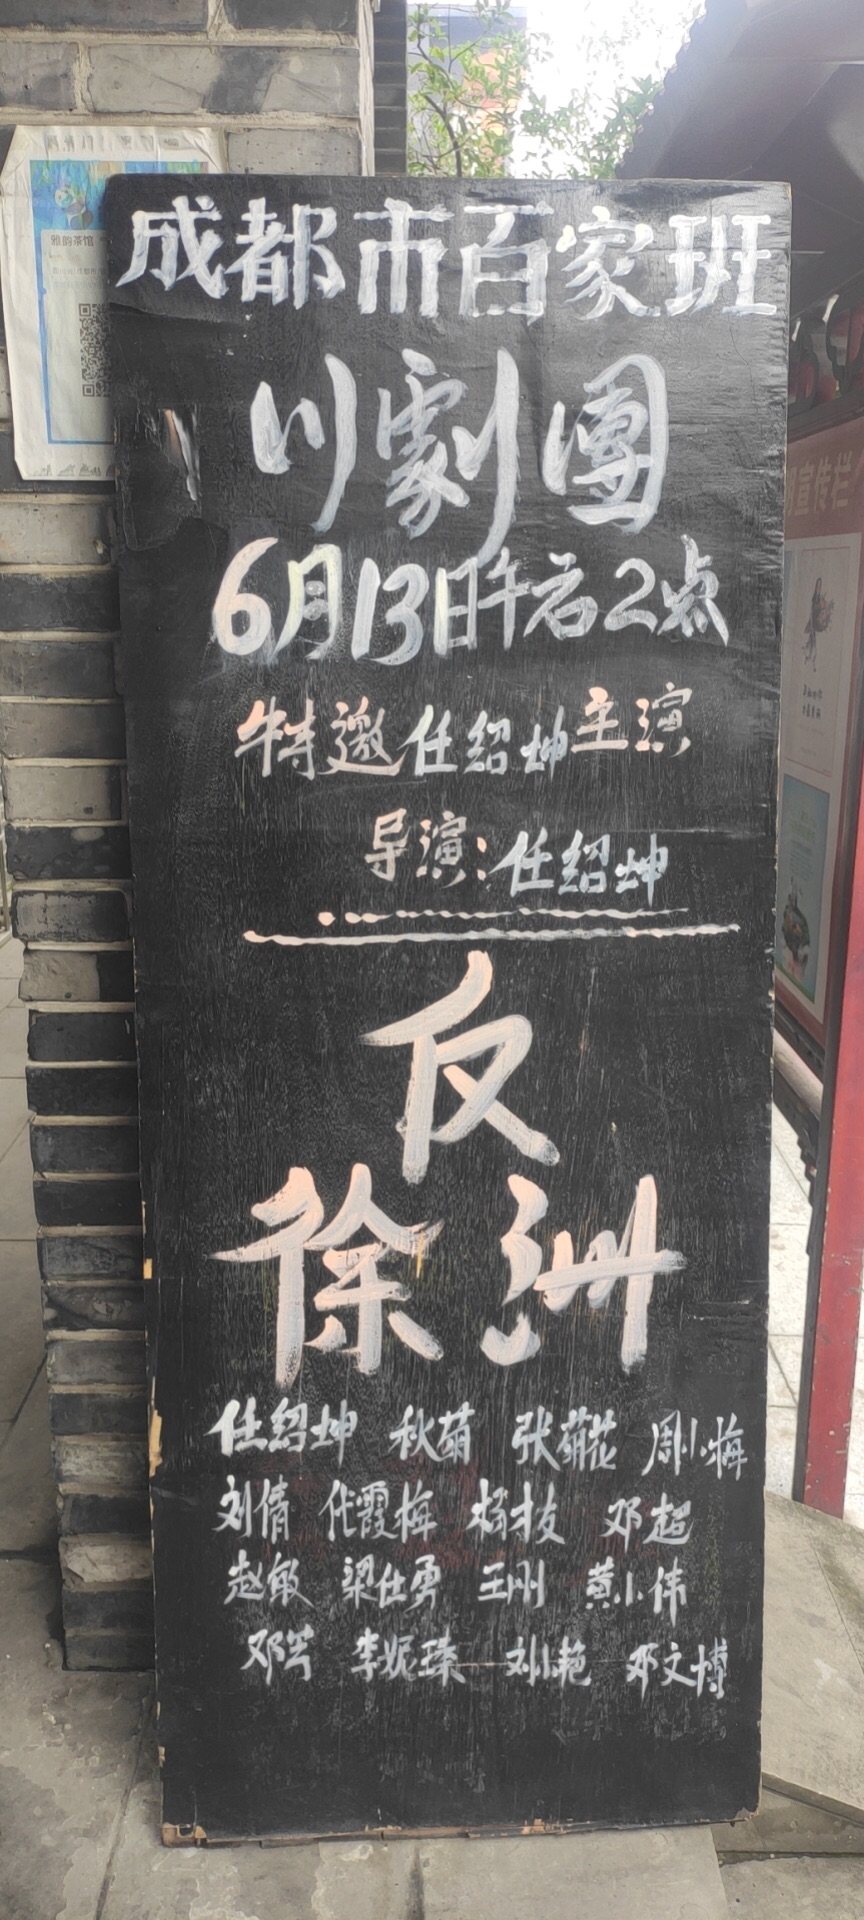 成都市百家班
川劇團
6月13日午后2点
特邀任绍坤主演
导演:任绍坤
反
徐洲
任绍坤 秋菊 张菊花 周小梅
刘倩 代霞梅 杨才友 邓超
赵敏 梁仕勇 王刚 黄小伟
邓芸 李妮臻 刘小艳 邓文博
雅韵茶馆
宣传栏